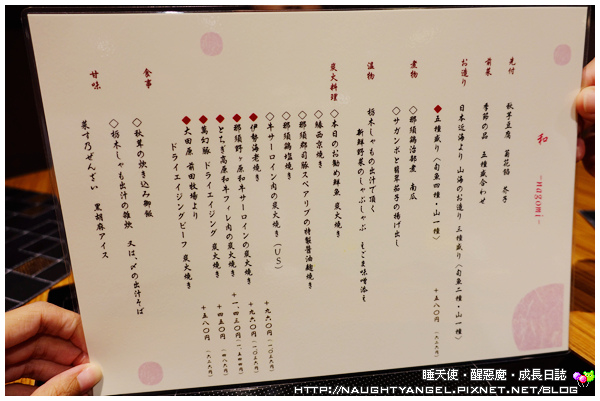 和
-nagomi-
先付
秋子豆腐 菊花餡 芥子
前菜
季節の品 五種盛合わせ
お造り
日本近海より 山海のお造り 三種盛り(旬魚二種・山一種)
◆五種盛り(旬魚四種・山一種) +五八〇円
煮物
◇那須鶏治部煮 南瓜
◇サガンボと翡翠茄子の揚げ出し
温物
栃木しゃもの出汁で頂く
新鮮野菜のしゃぶしゃぶ えごま味噌添え
炭火料理
◇本日のお勧め鮮魚 炭火焼き
◇縁西京焼き
◇那須郡司豚スペアリブの特製醤油麹焼き
◇那須鶏塩焼き
◇牛サーロイン肉の炭火焼き(US)
◆伊勢海老焼き +九六〇円
◆那須野ヶ原和牛サーロインの炭火焼き +九六〇円
◆とちぎ高原和牛フィレ肉の炭火焼き +一、四三〇円
◆萬幻豚 ドライエイジング 炭火焼き +四五〇円
◆大田原 前田牧場より
ドライエイジングビーフ 炭火焼き +五八〇円
食事
◇秋茸の炊き込み御飯
◇栃木しゃも出汁の雑炊 又は、〆の出汁そば
甘味
菓寸乃ぜんざい 黒胡麻アイス
睡天使・醒惡魔・成長日誌
HTTP://NAUGHTYANGEL.PIXNET.NET/BLOG